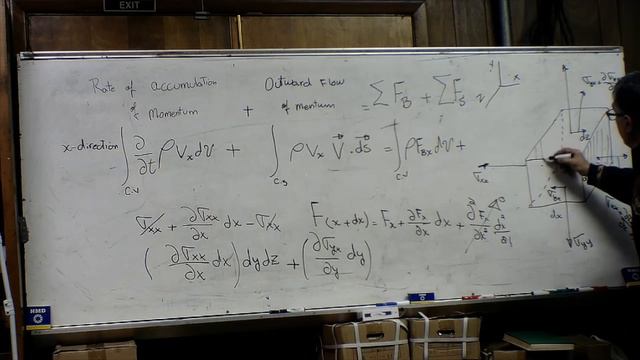 EXIT
Rate of accumulation of Momentum + Outward Flow of mentum = ΣF_B + ΣF_S
x-direction ∫_{C.V} ∂/∂t ρV_x dV + ∫_{C.S} ρV_x V⃗·ds⃗ = ∫_{C.V} ρF_{Bx} dV +
σ_xx + ∂σ_xx/∂x dx - σ_xx
F(x+dx) = F_x + ∂F_x/∂x dx + ∂²F_x/∂x² dx²/2!
(∂σ_xx/∂x dx) dydz + (∂σ_yx/∂y dy)
y
x
σ_xx
dz
dx
σ_yy
HMD